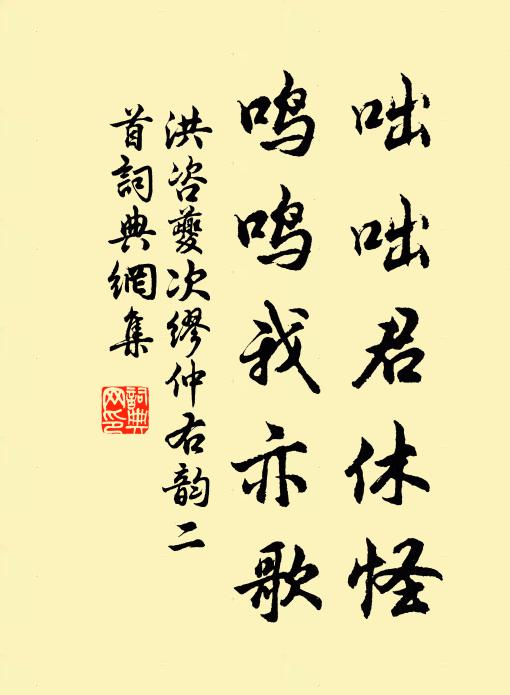 咄咄君休怪
鸣鸣我亦歌
洪咨夔次繆仲右韵二
首詞典網集
詞典
网印